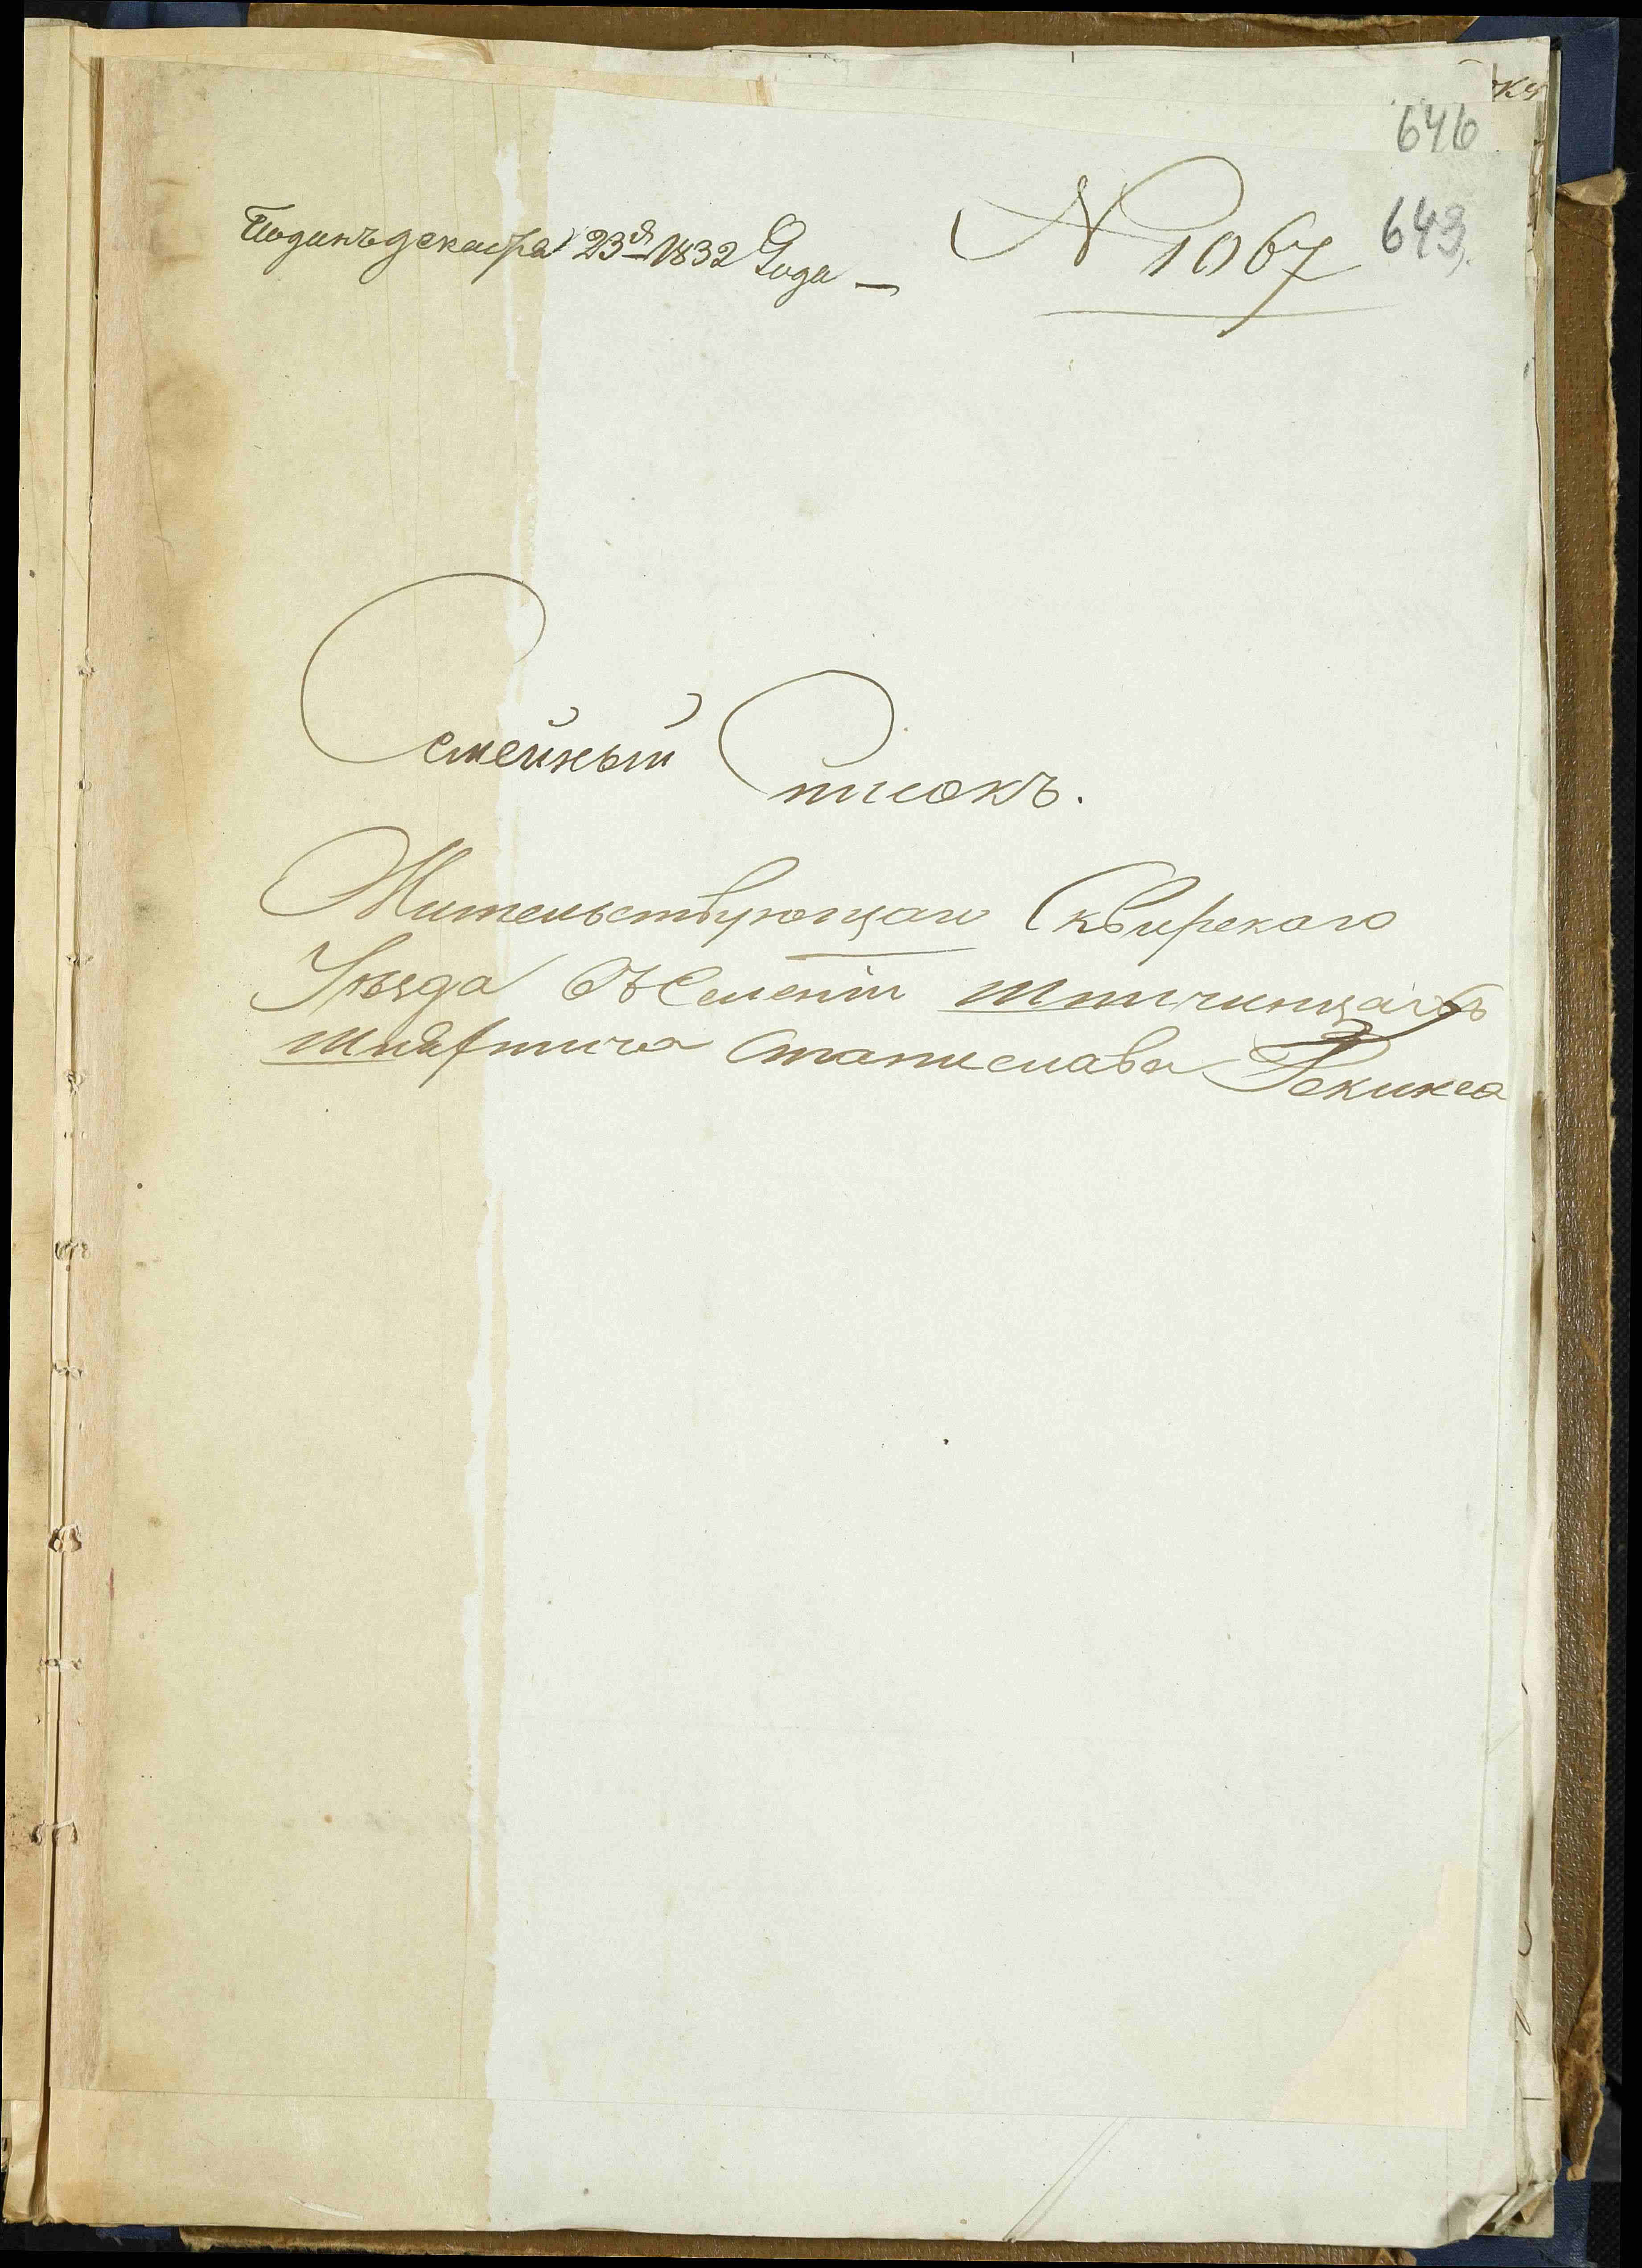 646
643
Поданъ декабра 23д 1832 Года —
N 1067
Семейный Списокъ.
Жительствующаго Сквирскаго
Уѣзда въ Селеніи Шпичинцахъ
Шляхтича Станислава